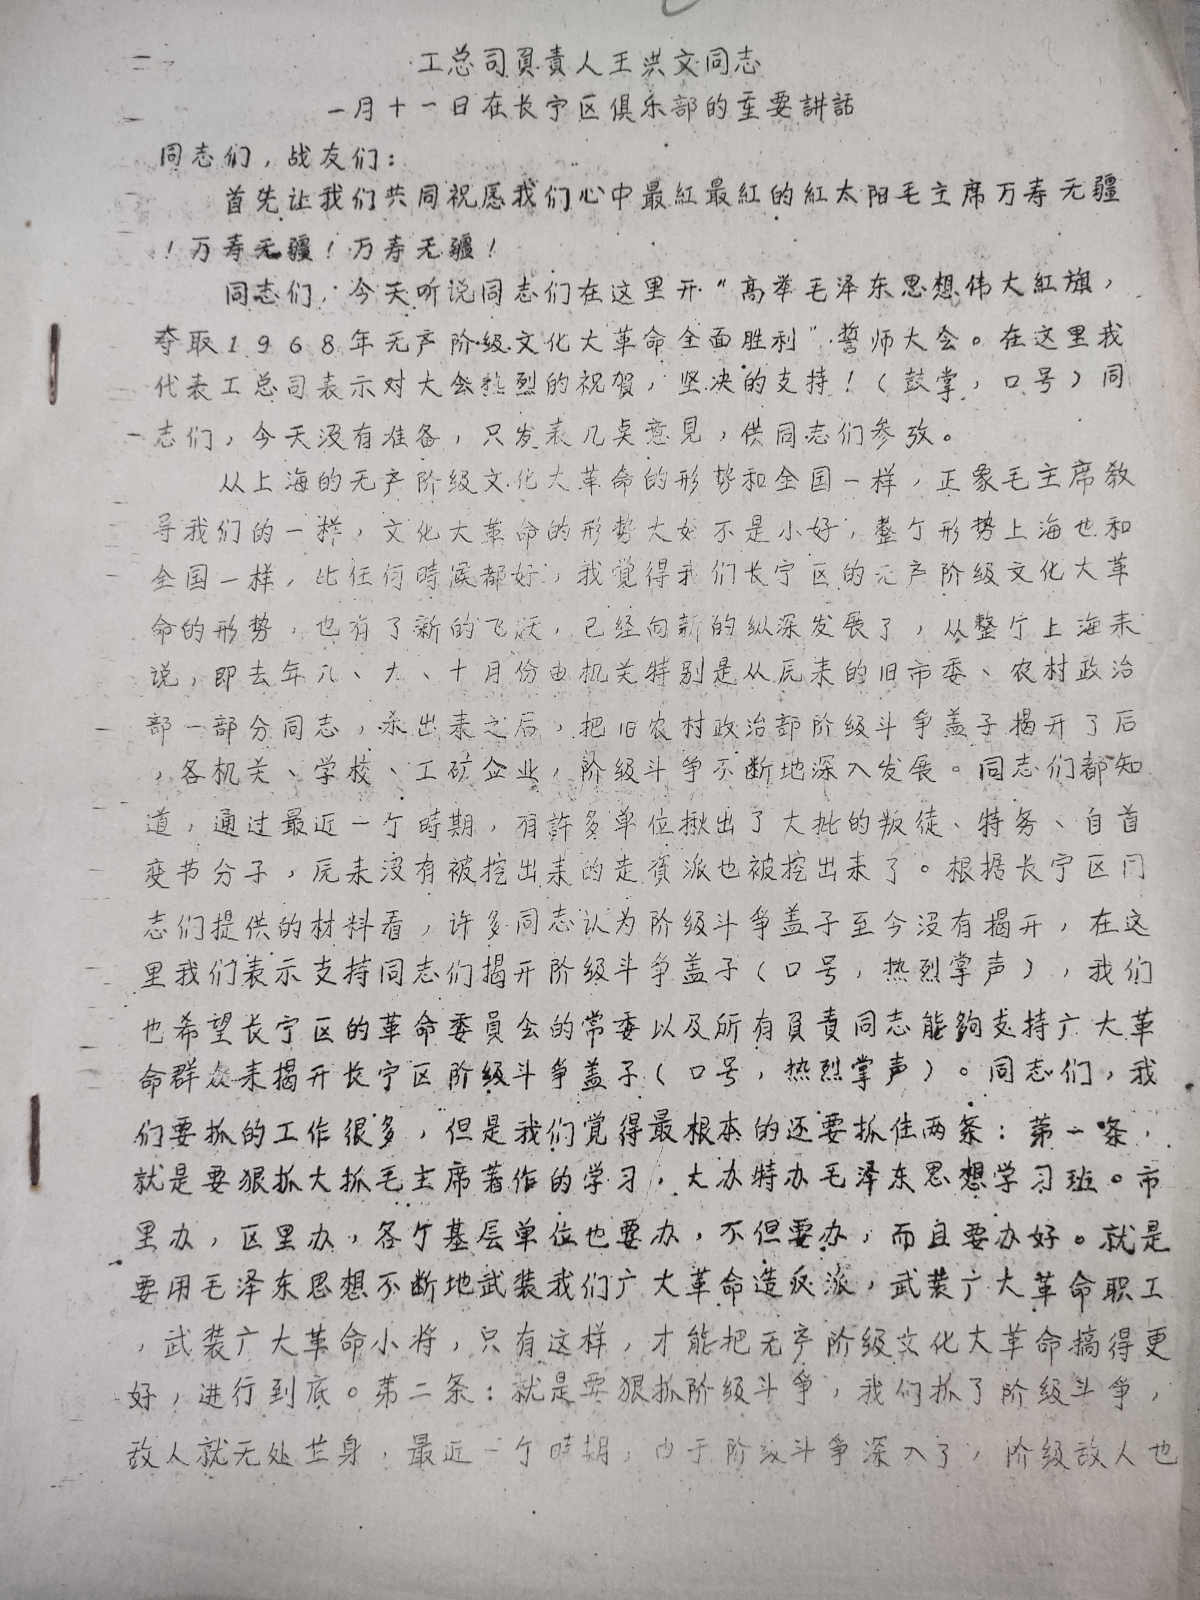 工总司負責人王洪文同志
一月十一日在长宁区俱乐部的重要講話
同志们，战友们：
首先让我们共同祝愿我们心中最紅最紅的紅太阳毛主席万寿无疆
！万寿无疆！万寿无疆！
同志们，今天听说同志们在这里开“高举毛泽东思想伟大紅旗，
夺取1968年无产阶级文化大革命全面胜利”誓师大会。在这里我
代表工总司表示对大会热烈的祝賀，坚决的支持！（鼓掌，口号）同
志们，今天没有准备，只发表几点意見，供同志们参攷。
从上海的无产阶级文化大革命的形势和全国一样，正象毛主席教
导我们的一样，文化大革命的形势大好不是小好，整个形势上海也和
全国一样，比任何時候都好，我覚得我们长宁区的无产阶级文化大革
命的形势，也有了新的飞跃，已经向新的纵深发展了，从整个上海来
说，即去年八、九、十月份由机关特别是从原来的旧市委、农村政治
部一部分同志，杀出来之后，把旧农村政治部阶级斗争盖子揭开了后
，各机关、学校、工矿企业，阶级斗争不断地深入发展。同志们都知
道，通过最近一个時期，有許多单位揪出了大批的叛徒、特务、自首
变节分子，原来没有被挖出来的走資派也被挖出来了。根据长宁区同
志们提供的材料看，许多同志认为阶级斗争盖子至今没有揭开，在这
里我们表示支持同志们揭开阶级斗争盖子（口号，热烈掌声），我们
也希望长宁区的革命委員会的常委以及所有負責同志能夠支持广大革
命群众来揭开长宁区阶级斗争盖子（口号，热烈掌声）。同志们，我
们要抓的工作很多，但是我们覚得最根本的还要抓住两条：第一条，
就是要狠抓大抓毛主席著作的学习，大办特办毛泽东思想学习班。市
里办，区里办，各个基层单位也要办，不但要办，而且要办好。就是
要用毛泽东思想不断地武装我们广大革命造反派，武装广大革命职工
，武装广大革命小将，只有这样，才能把无产阶级文化大革命搞得更
好，进行到底。第二条：就是要狠抓阶级斗争，我们抓了阶级斗争，
敌人就无处芷身，最近一个時期，由于阶级斗争深入了，阶级敌人也